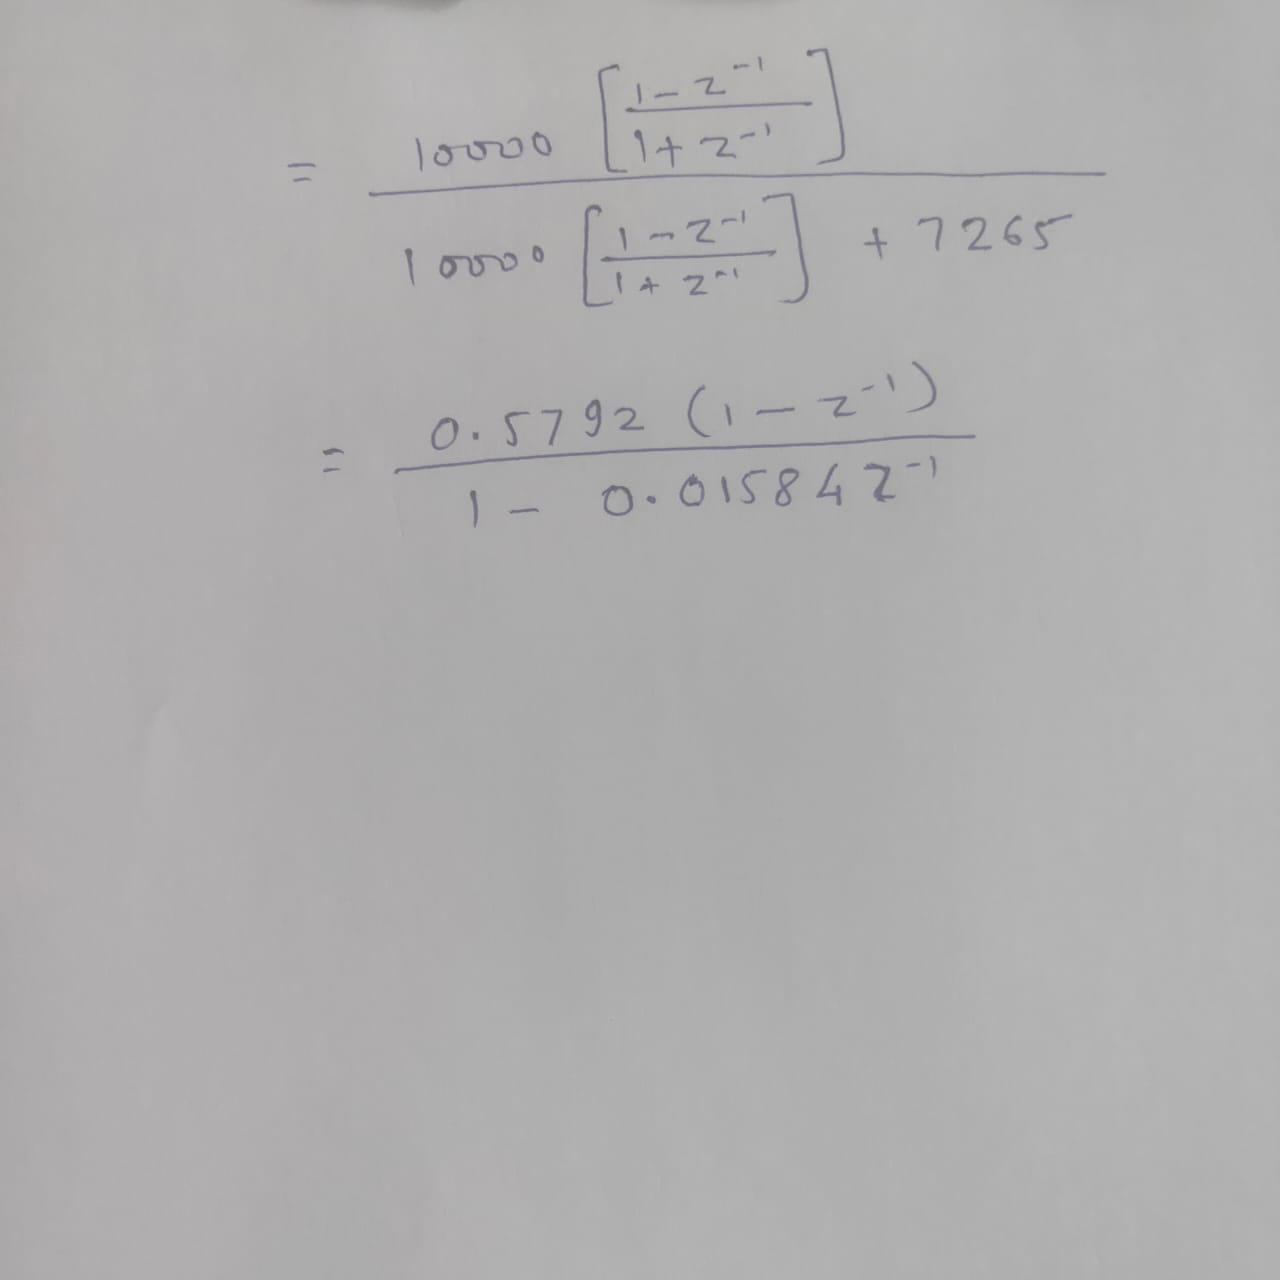 = 10000 [ (1 - z⁻¹) / (1 + z⁻¹) ] / ( 10000 [ (1 - z⁻¹) / (1 + z⁻¹) ] + 7265 )
= 0.5792 (1 - z⁻¹) / ( 1 - 0.01584 z⁻¹ )